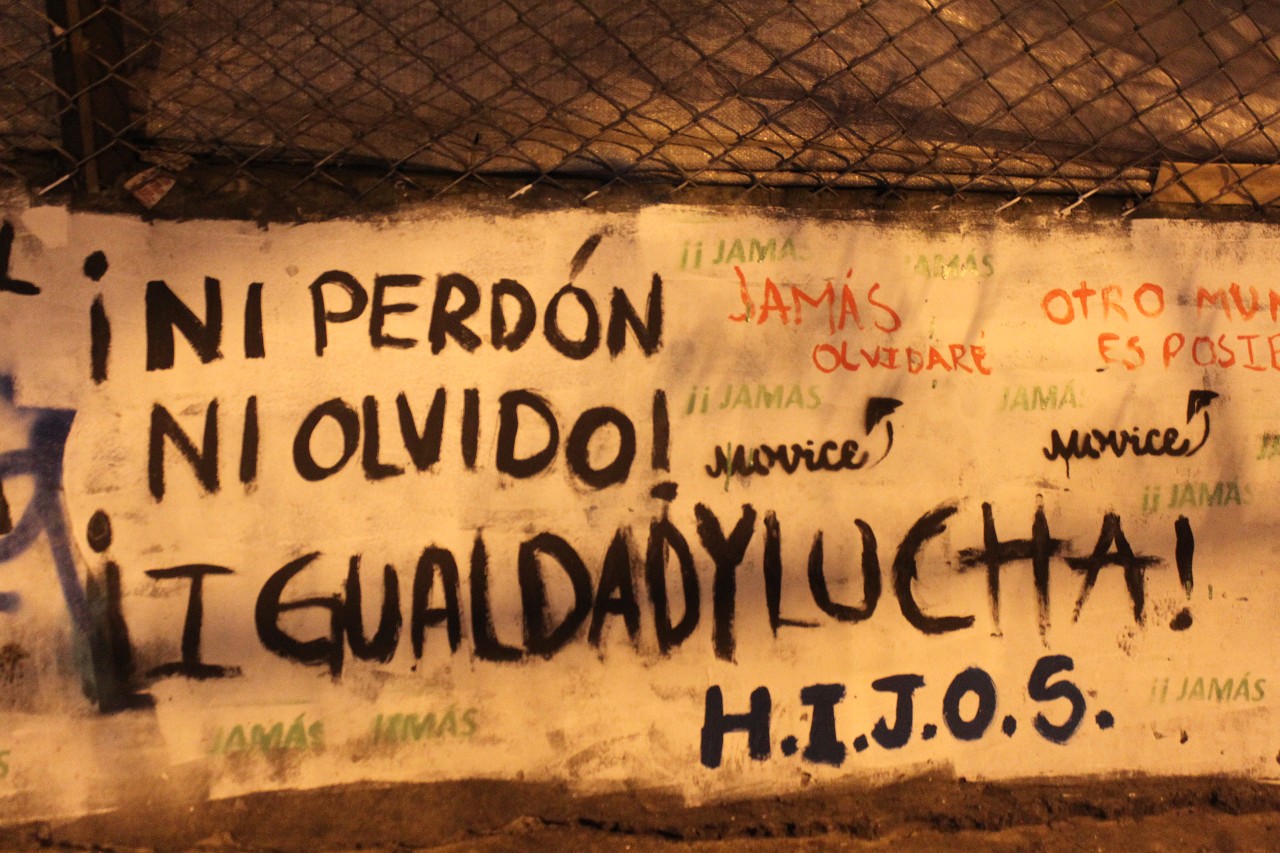 ¡NI PERDÓN
NI OLVIDO!
¡IGUALDAD Y LUCHA!
H.I.J.O.S.
¡¡ JAMÁS
JAMÁS
JAMÁS
OLVIDARÉ
OTRO MUN
ES POSIB
¡¡ JAMÁS
JAMÁS
movice
movice
¡¡ JAMÁS
¡¡ JAMÁS
JAMÁS
JAMÁS